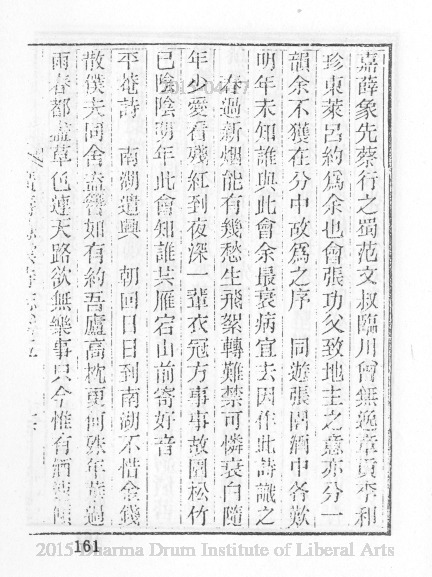 嘉薛象先蔡行之蜀范文叔臨川曾無逸章貢李和
珍東萊呂約爲余也會張功父致地主之意亦分一
韻余不獲在分中故爲之序　同遊張園網中各歎
明年未知誰與此會余最衰病宜去因作此詩識之
春過新烟能有幾愁生飛絮轉難禁可憐衰白隨
年少愛看殘紅到夜深一輩衣冠方事事故園松竹
已陰陰明年此會知誰共雁宕山前寄好音
平菴詩　南湖遣興　朝回日日到南湖不惜金錢
散僕夫同舍盍簪如有約吾廬高枕更何殊年華過
雨春都盡草色連天路欲無樂事只今惟有酒
161
2015 Dharma Drum Institute of Liberal Arts